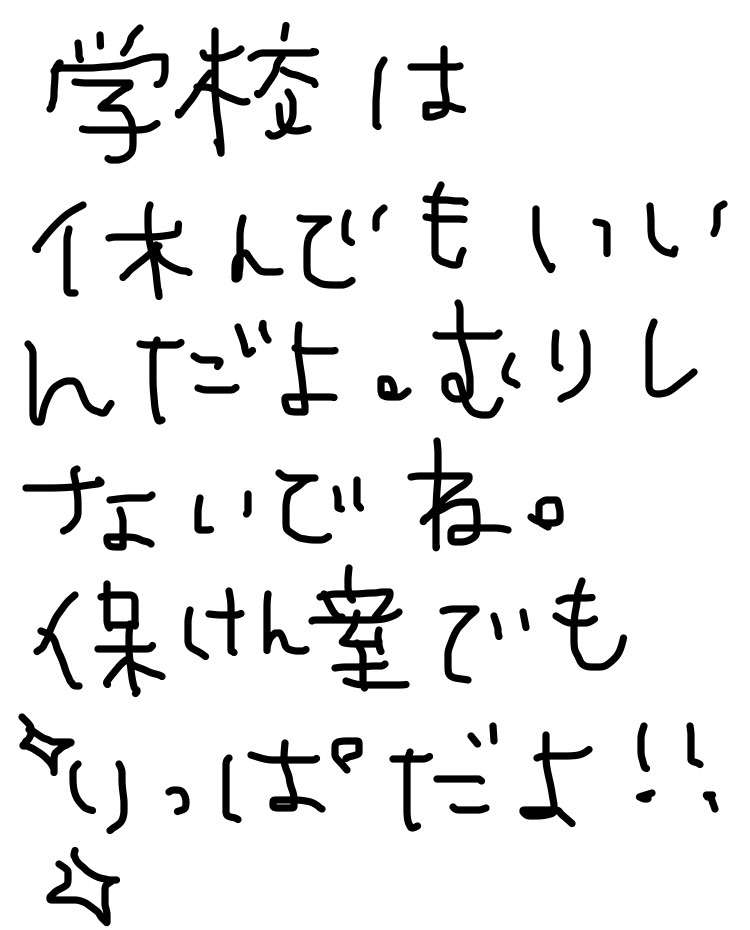 学校は
休んでもいい
んだよ。むりし
ないでね。
保けん室でも
りっぱだよ!!